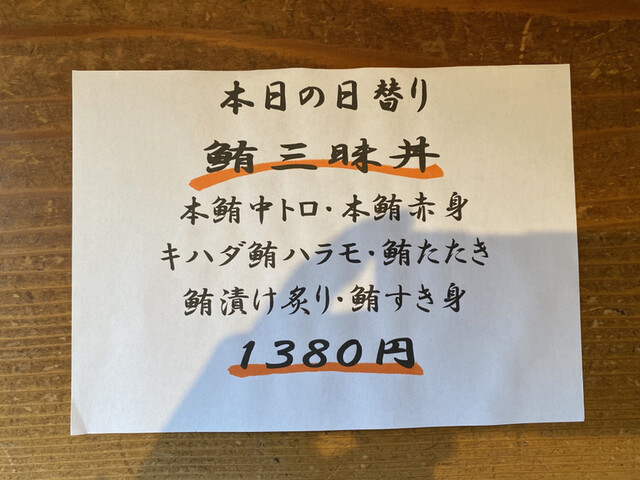 本日の日替り
鮪三昧丼
本鮪中トロ・本鮪赤身
キハダ鮪ハラモ・鮪たたき
鮪漬け炙り・鮪すき身
1380円